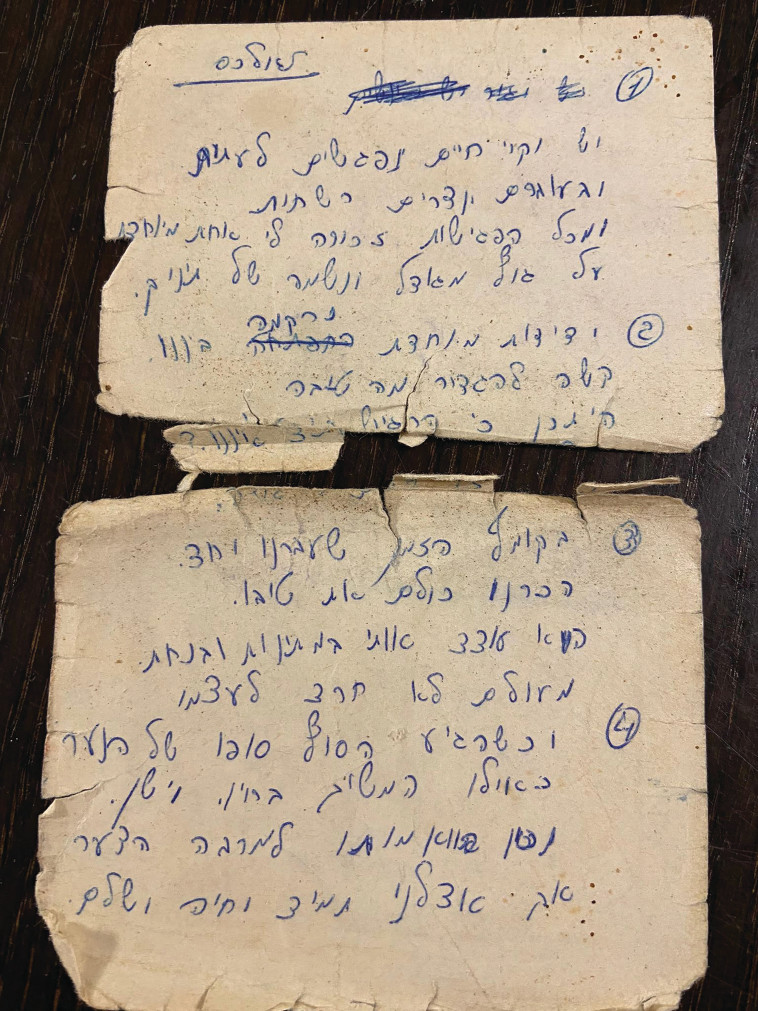 ① יש
יש וקוי חיים נפגשים לעתים
ובעוברם יוצרים רשתות
ומכל הפגישות זכורה לי אחת מיוחדת
על גוף מגודל ונשמה של תינוק.
נרקמה
② ידידות מיוחדת בינינו.
קשה להגדיר מה טיבה
היתכן כי הרגיש איננו?
③ בקוטל הזמן שעברנו יחד.
הכרנו כולם את טיבו.
הוא עודד אותי במתינות ובנחת
מעולם לא חרד לעצמו
④ וכשהגיע הסוף סופו של הנער
כאילו המשיך ברוין וישן.
נכון מותו למרבה הצער
אך אצלני תמיד וחיה ושלם